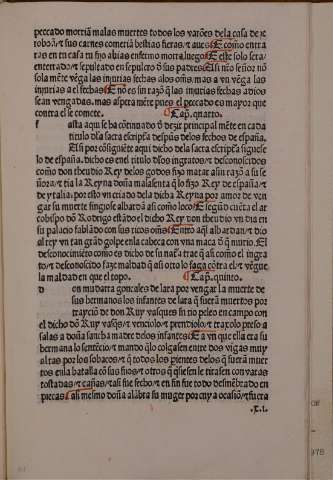 peccado morirā malas muertes todos los varōes dela casa de ie
roboā/ τ sus carnes comeriā bestias fieras/ τ aues. E como entra
ras en tu casa tu fijo abias enfermo morra luego. E este solo sera
enterrado/ τ sepultado en sepulcro d̄ sus padres. Assi n̄ro señor nō
sola mēte vēga las injurias fechas alos oms̄. mas a vn vēga las
injurias a el fechas. E no es sin razō q̄ las injurias fechas a dios
sean vengadas. mas aspera mēte pues el peccado es mayor que
contra el se comete. Cap. quarto.
f asta aqui se ha cōtinuado d̄ dezir principal mēte en cada
titulo dela sacra escriptura despues delos fechos de españa.
Assi por cōsiguiēte aqui dicho dela sacra escriptura siguese
lo de españa. dicho es enel titulo delos ingratos/ τ desconoscidos
como don theudio Rey delos godos fizo matar a sin razō a su se
ñora/ τ tia la Reyna doña malasenta q̄ lo fizo Rey de españa/ τ
de ytalia. por esto vn criado dela dicha Reyna por amor de ven
gar su muerte fingiose albardā/ assi como loco. E segund cuēta el ar
cobispo dō Rodrigo estādo el dicho Rey don theudio vn dia en
su palacio fablādo con sus ricos oms̄. Entro aq̄l albardan/ τ dio
al rey vn tan grād golpe enla cabeca con vna maca d̄ q̄ murio. El
desconocimiēto como es dicho de su natura trae q̄ assi como el ingra
to/ τ desconoscido faze maldad q̄ assi otro lo faga cōtra el/ τ vēgue
la maldad en que el topo. Cap. quinto.
d on mudarra gonçales de lara por vengar la muerte de
sus hermanos los infantes de lara q̄ fuerā muertos por
traycio de don Ruy vasques fizo peleo en campo con
el dicho dō Ruy vasq̄s/ τ venciolo/ τ prendiolo/ τ traxolo preso a
salas a doña sancha madre delos infantes. E a vn que ella era su
hermana lo sentēcio/ τ mando q̄ lo colgasen entre dos vigas muy
altas por los sobacos/ τ q̄ todos los parientes delos q̄ fuerā muer
tos enla batalla cō sus fijos/ τ otros q̄ q̄siesen le tirasen con varas
tostadas/ τ cañas/ τ assi fue fecho/ τ en fin fue todo desmēbrado en
pieças. assi mesmo doña alābra su muger por cuya ocasiō/ τ fuera
.τ.i.